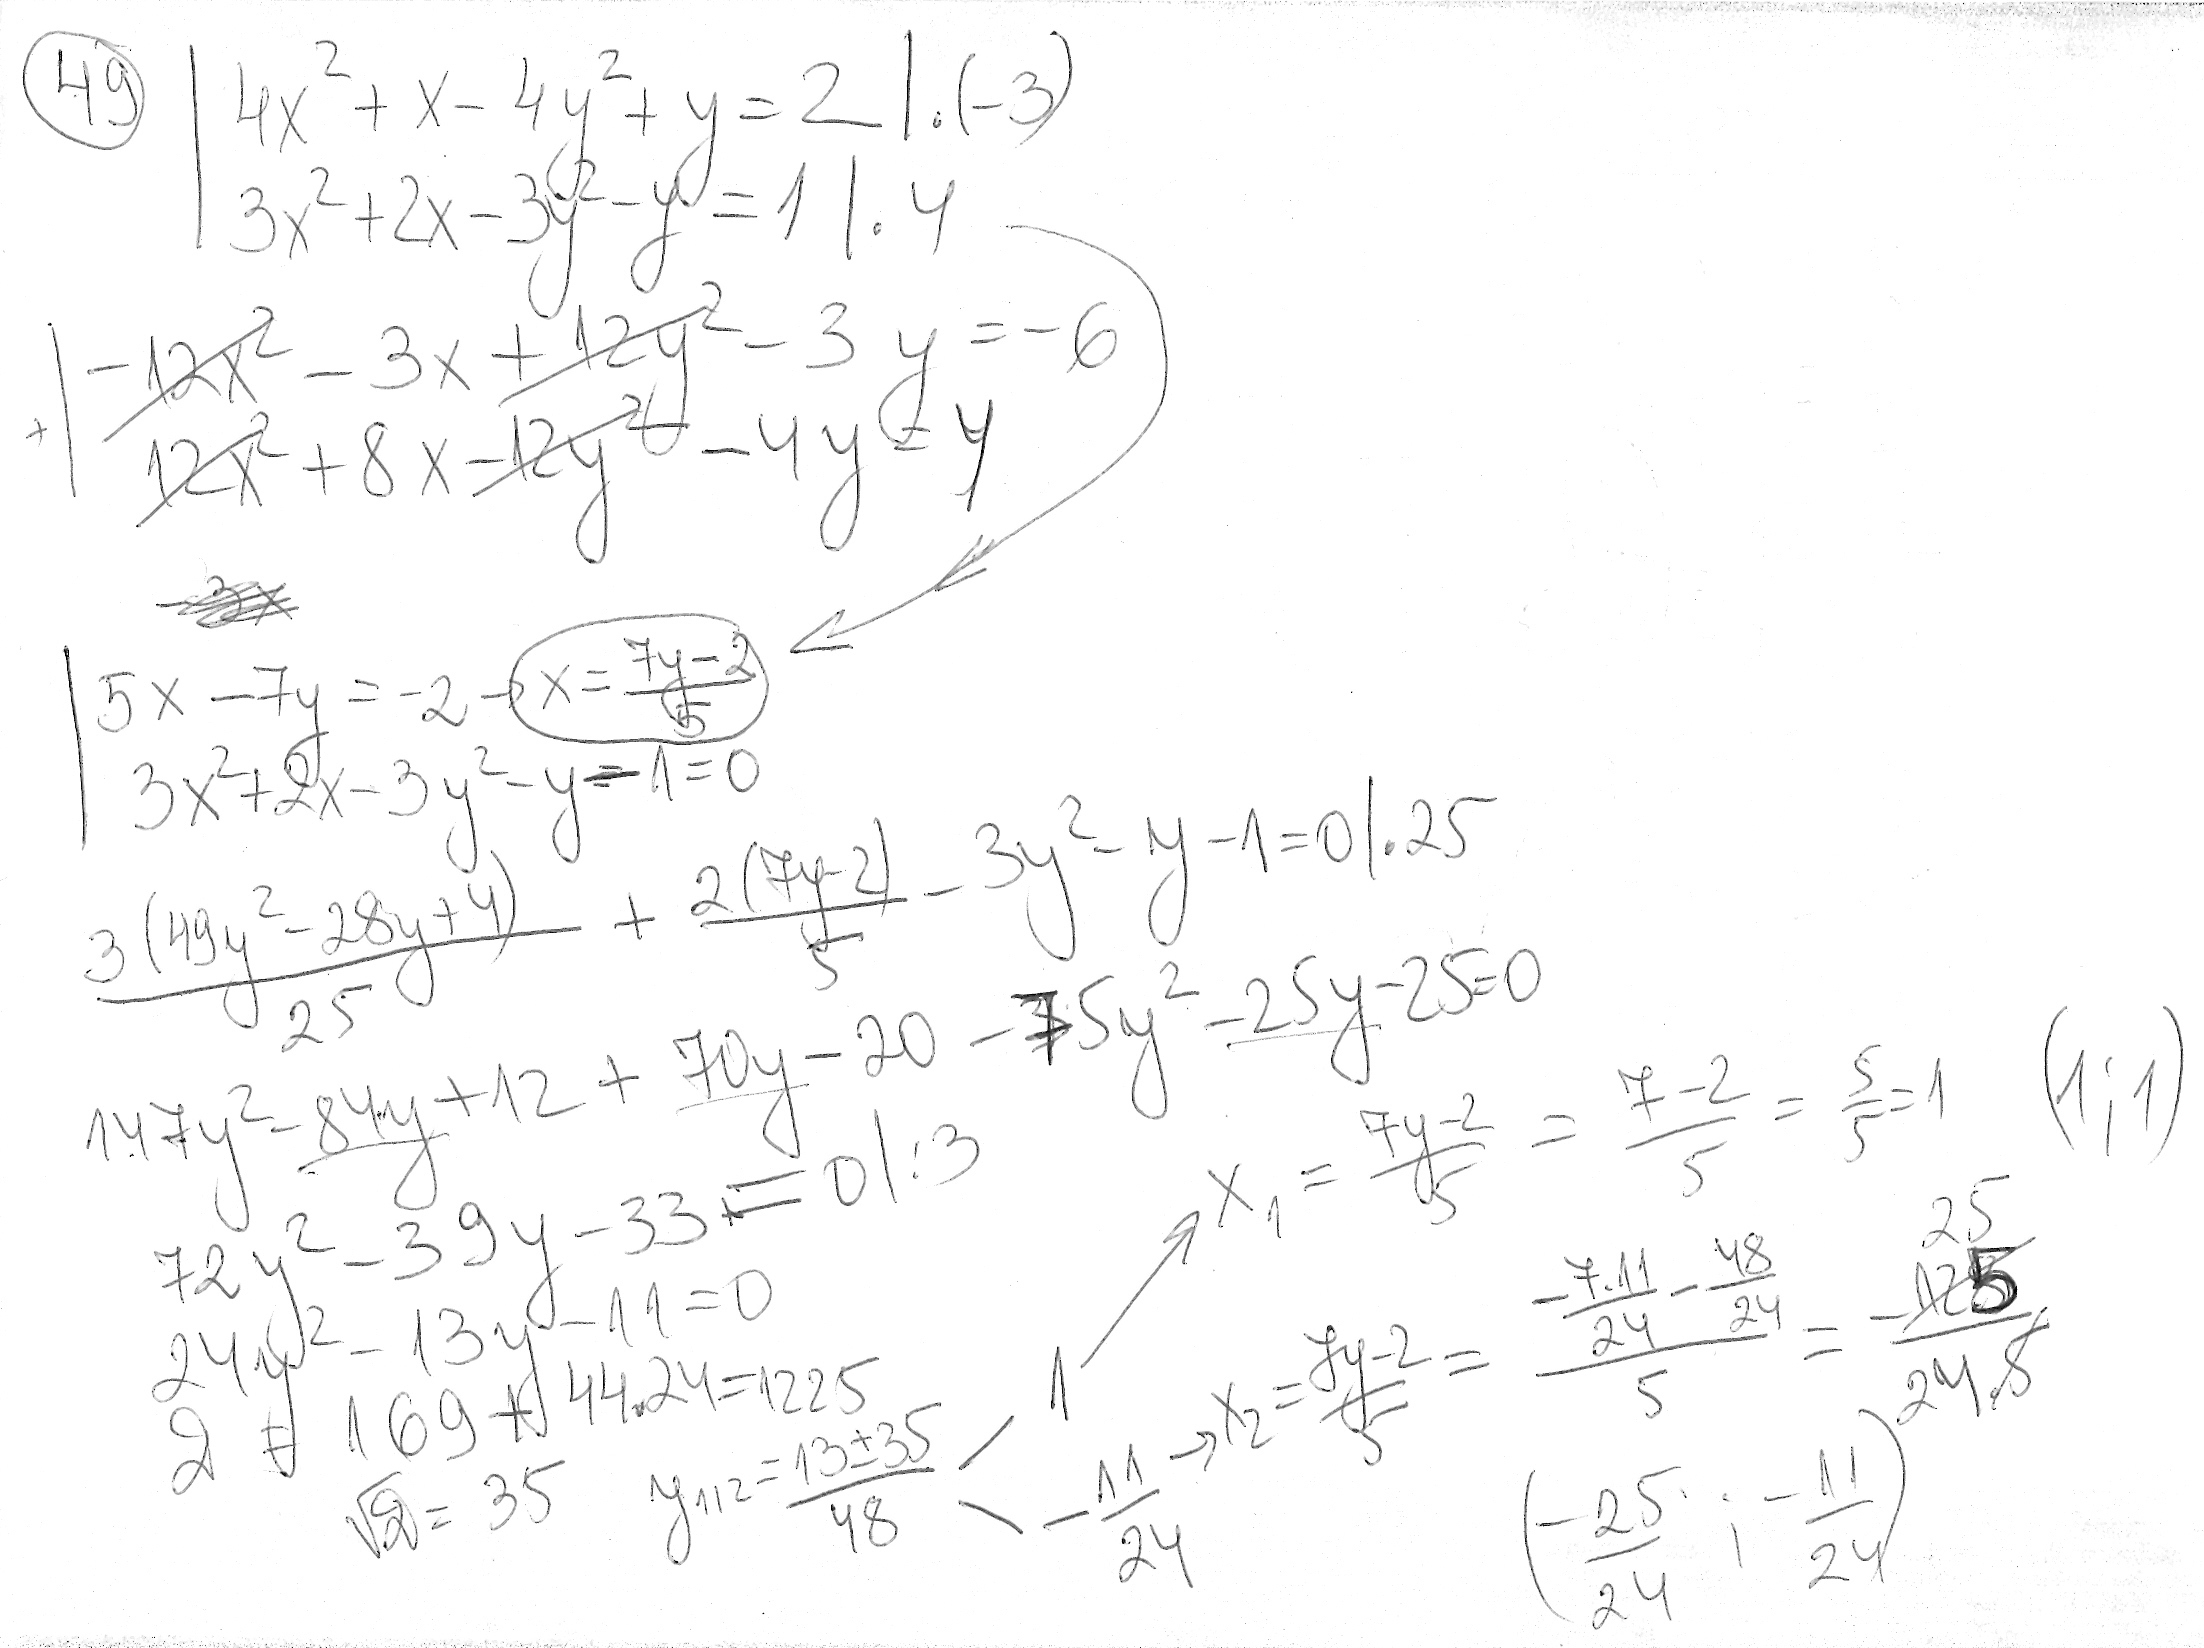 49
4x² + x - 4y² + y = 2 |.(-3)
3x² + 2x - 3y² - y = 1 |.4
-12x² - 3x + 12y² - 3y = -6
+
12x² + 8x - 12y² - 4y = 4
5x - 7y = -2 → x = (7y-2)/5
3x² + 2x - 3y² - y - 1 = 0
3(49y² - 28y + 4)/25 + 2(7y-2)/5 - 3y² - y - 1 = 0 |.25
147y² - 84y + 12 + 70y - 20 - 75y² - 25y - 25 = 0
72y² - 39y - 33 = 0 |:3
24y² - 13y - 11 = 0
D = 169 + 44.24 = 1225
√D = 35
y₁,₂ = (13±35)/48
1
-11/24
x₁ = (7y-2)/5 = (7-2)/5 = 5/5 = 1 (1;1)
→ x₂ = (7y-2)/5 = (-7.11/24 - 48/24)/5 = -125/24.5
25
(-25/24 ; -11/24)